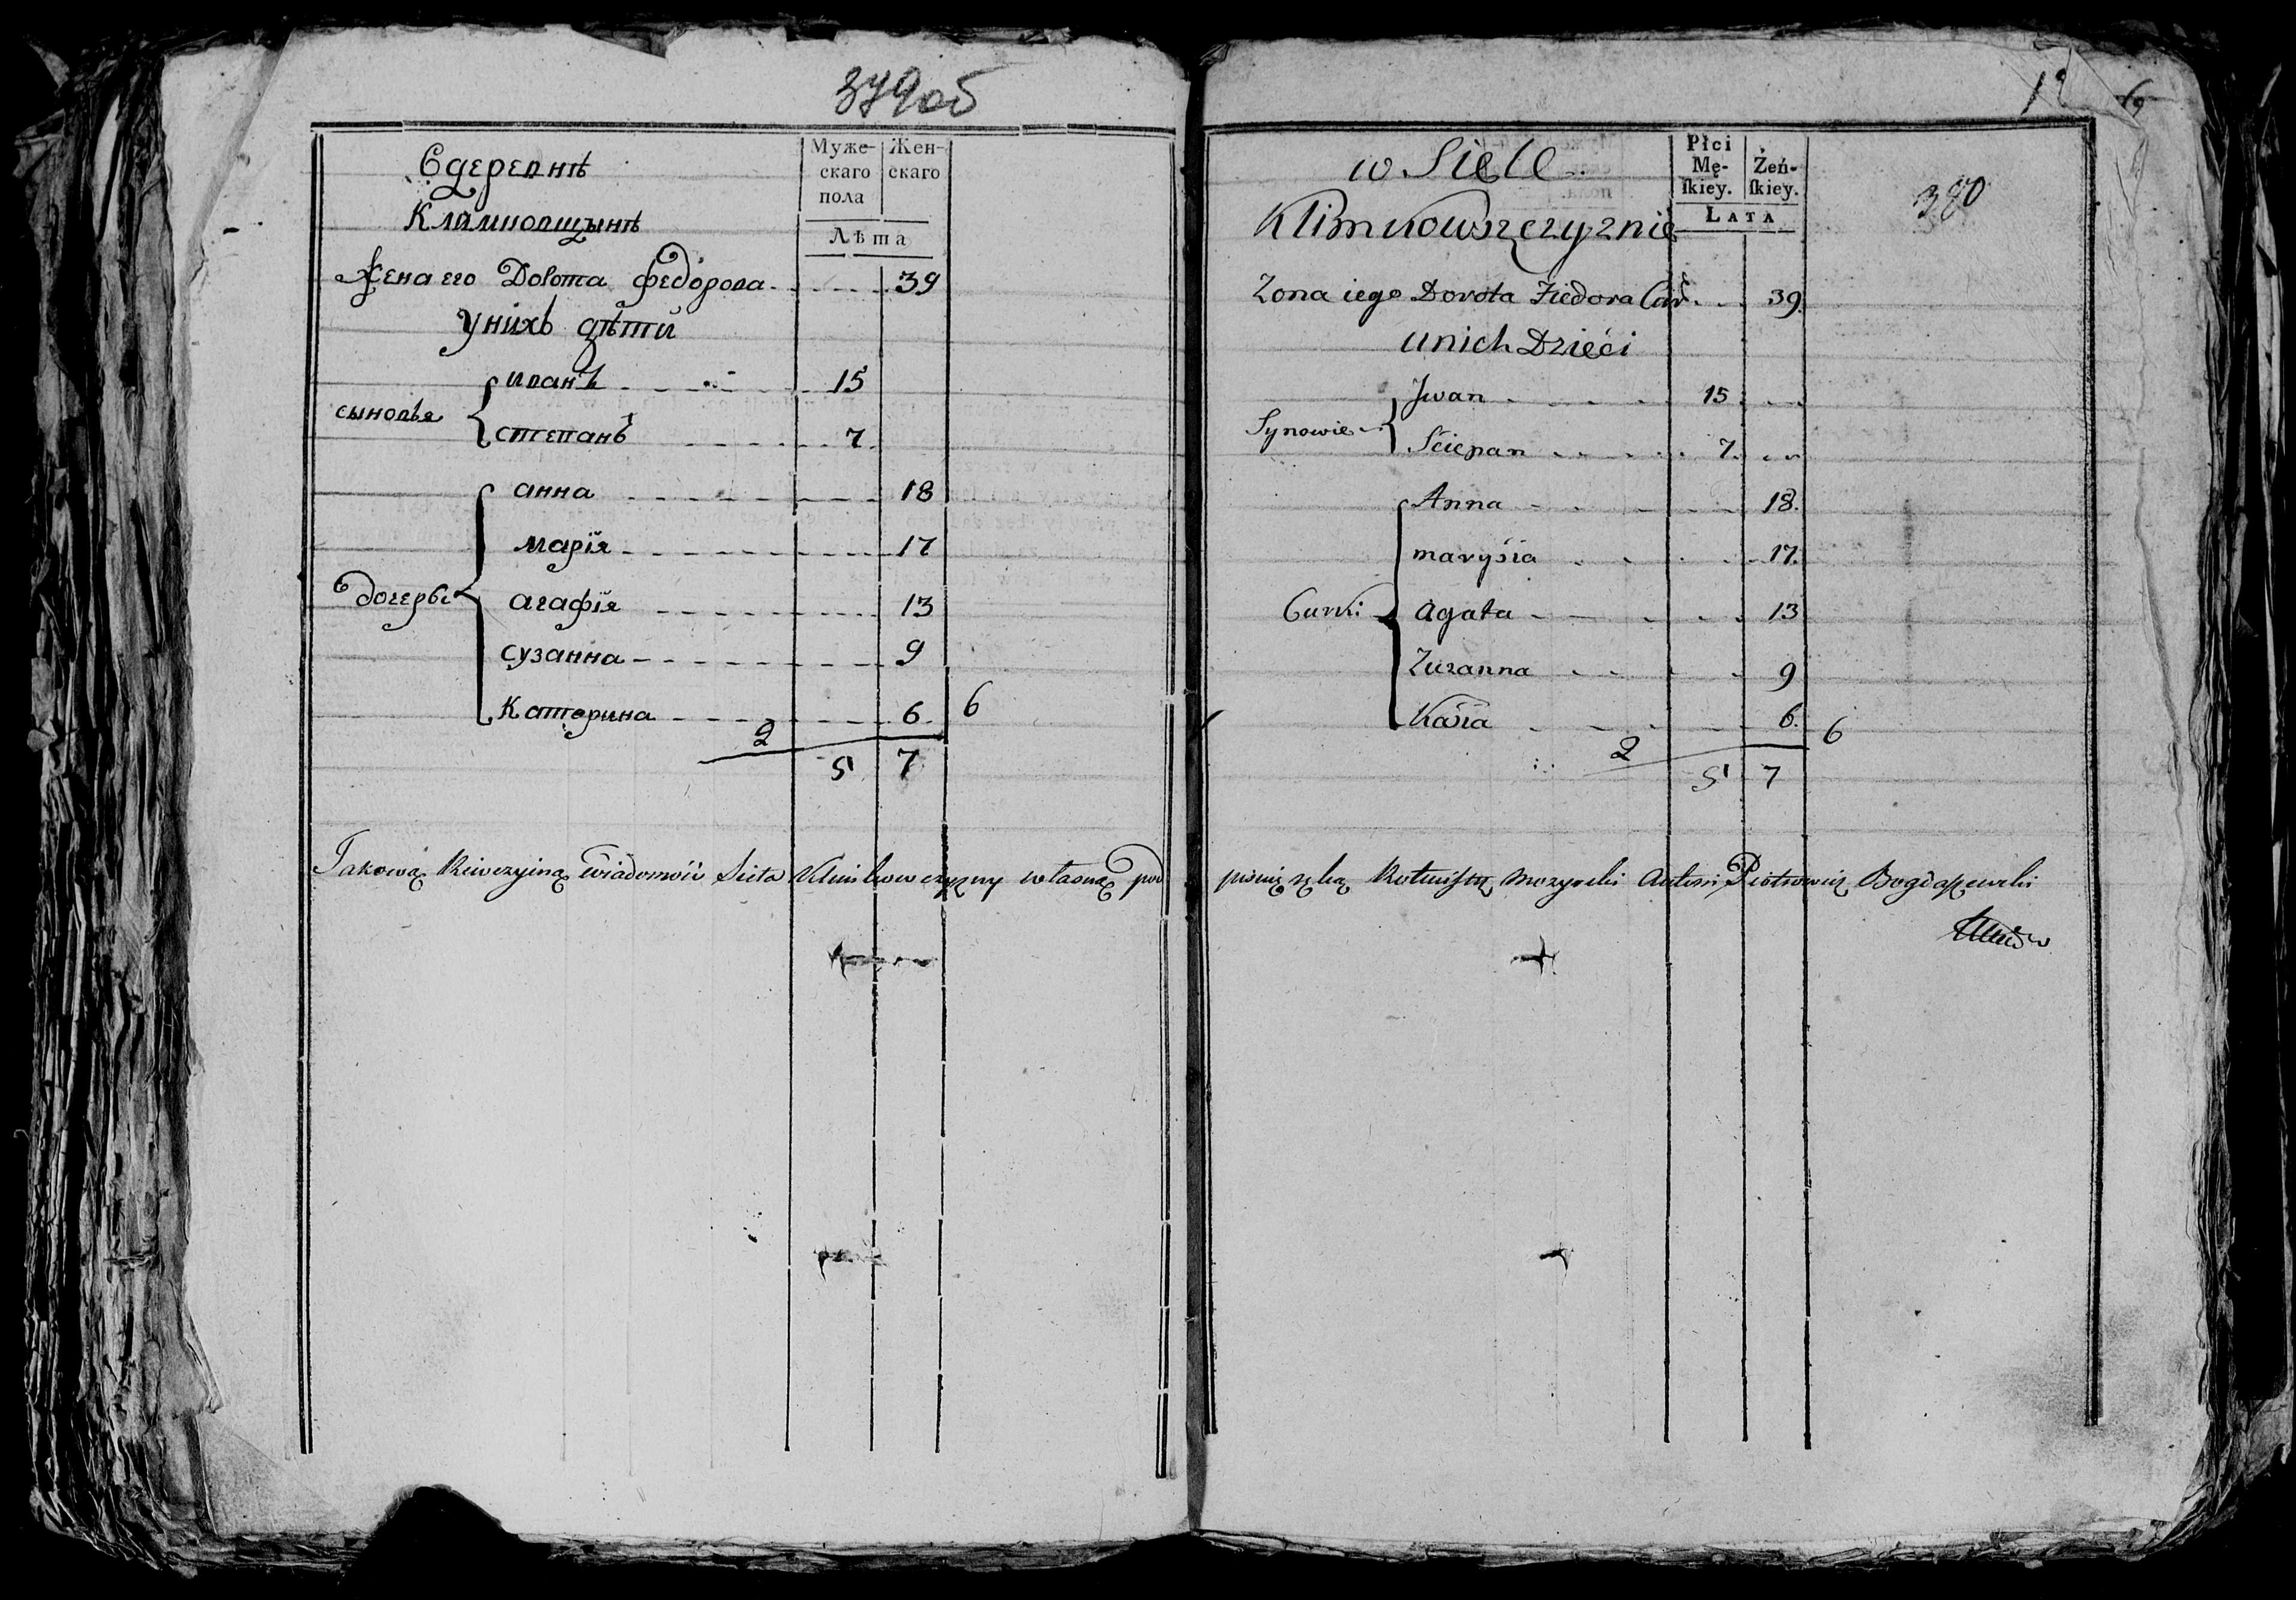 379об
Вдеревнѣ
Климковщынѣ
Муже-
скаго
пола
Жен-
скаго
Лѣта
Жена его Долота Федорова 39
Унихъ дѣти
сыновья
Иванъ 15
Степанъ 7
дочерьи
анна 18
марїя 17
агафїя 13
сузанна 9
Катерина 6 6
2
5 7
Takową Rewizyiną wiadomość Sieła Klimkowszczyzny własną pod
12
6
380
w Siele
Klimkowszczyznie
Płci
Mę-
ſkiey.
Żeń-
ſkiey.
LATA
Zona iego Dorota Fiedora Cór. 39
unich Dzieći
Synowie
Jwan 15
Sciepan 7
Curki
Anna 18.
marysia 17.
Agata 13
Zuzanna 9
Kasia 6. 6
2
5 7
pisuię ręką Rotmistrz Mozyrski Antoni Piotrowicz Bogdaszewski